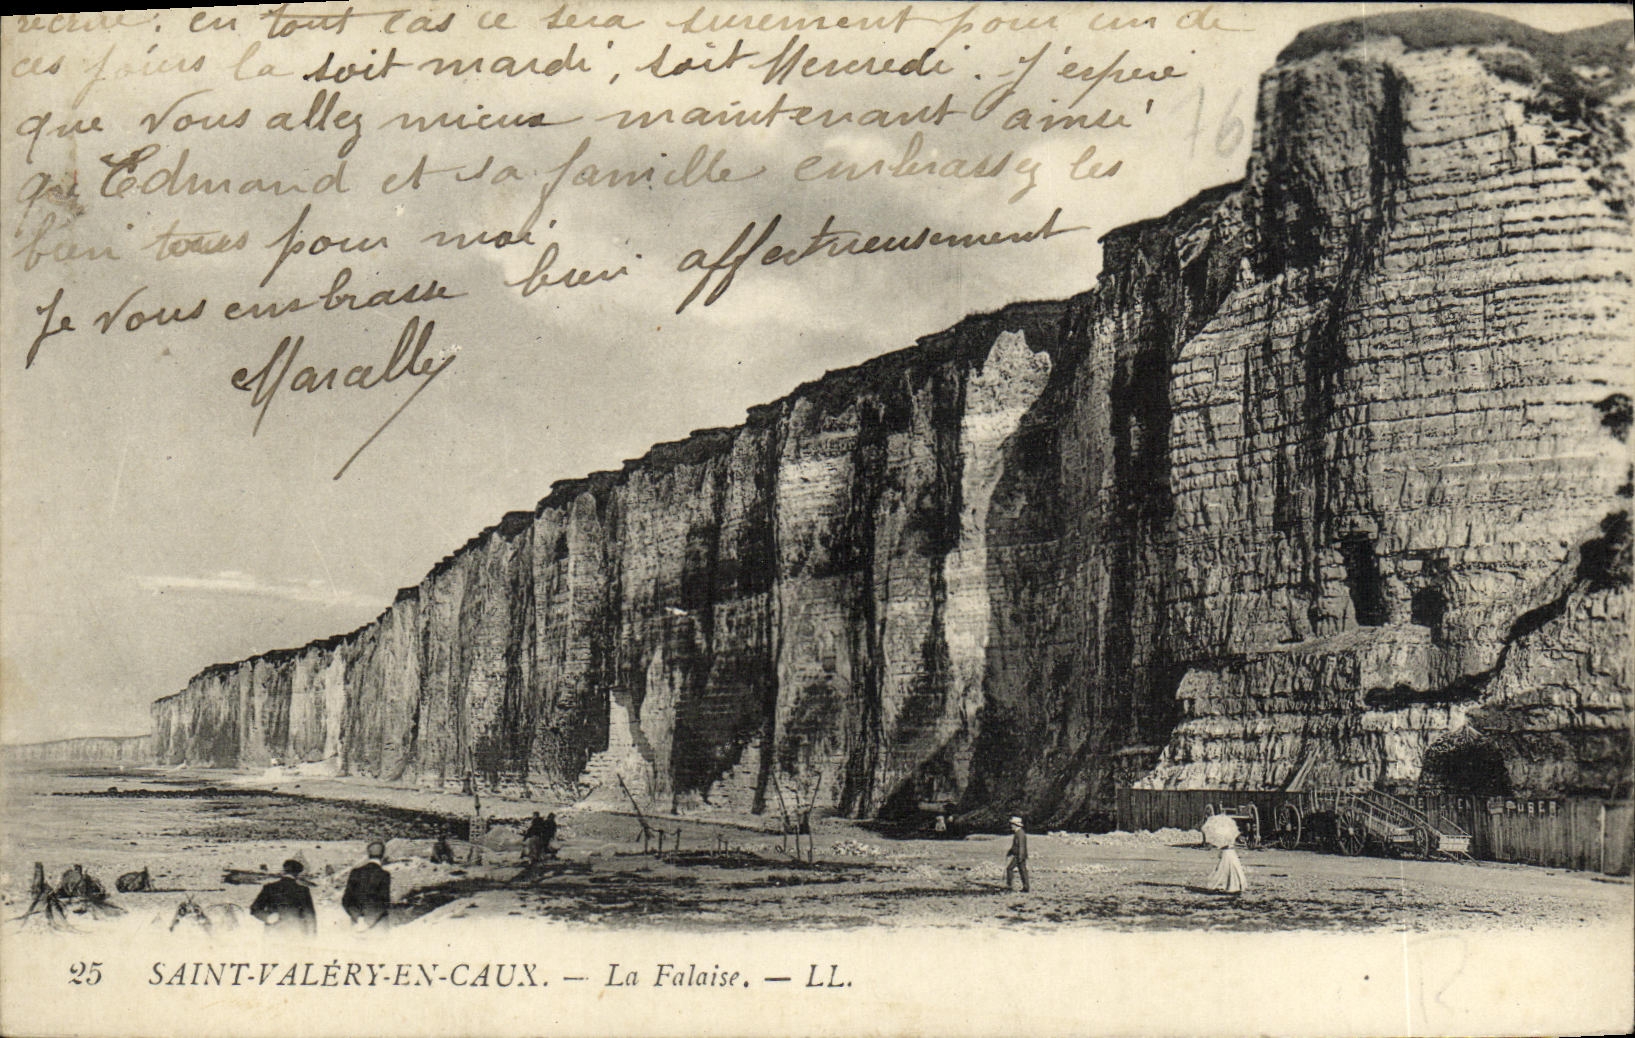 récrire : en tout cas ce sera surement pour un de
ces jours la soit mardi, soit Mercredi. J'espere
que vous allez mieux maintenant ainsi
qu' Edmond et sa famille embrassez les
bien tous pour moi
Je vous embrasse bien affectueusement
Marcelle
76
25 SAINT-VALÉRY-EN-CAUX. — La Falaise. — LL.